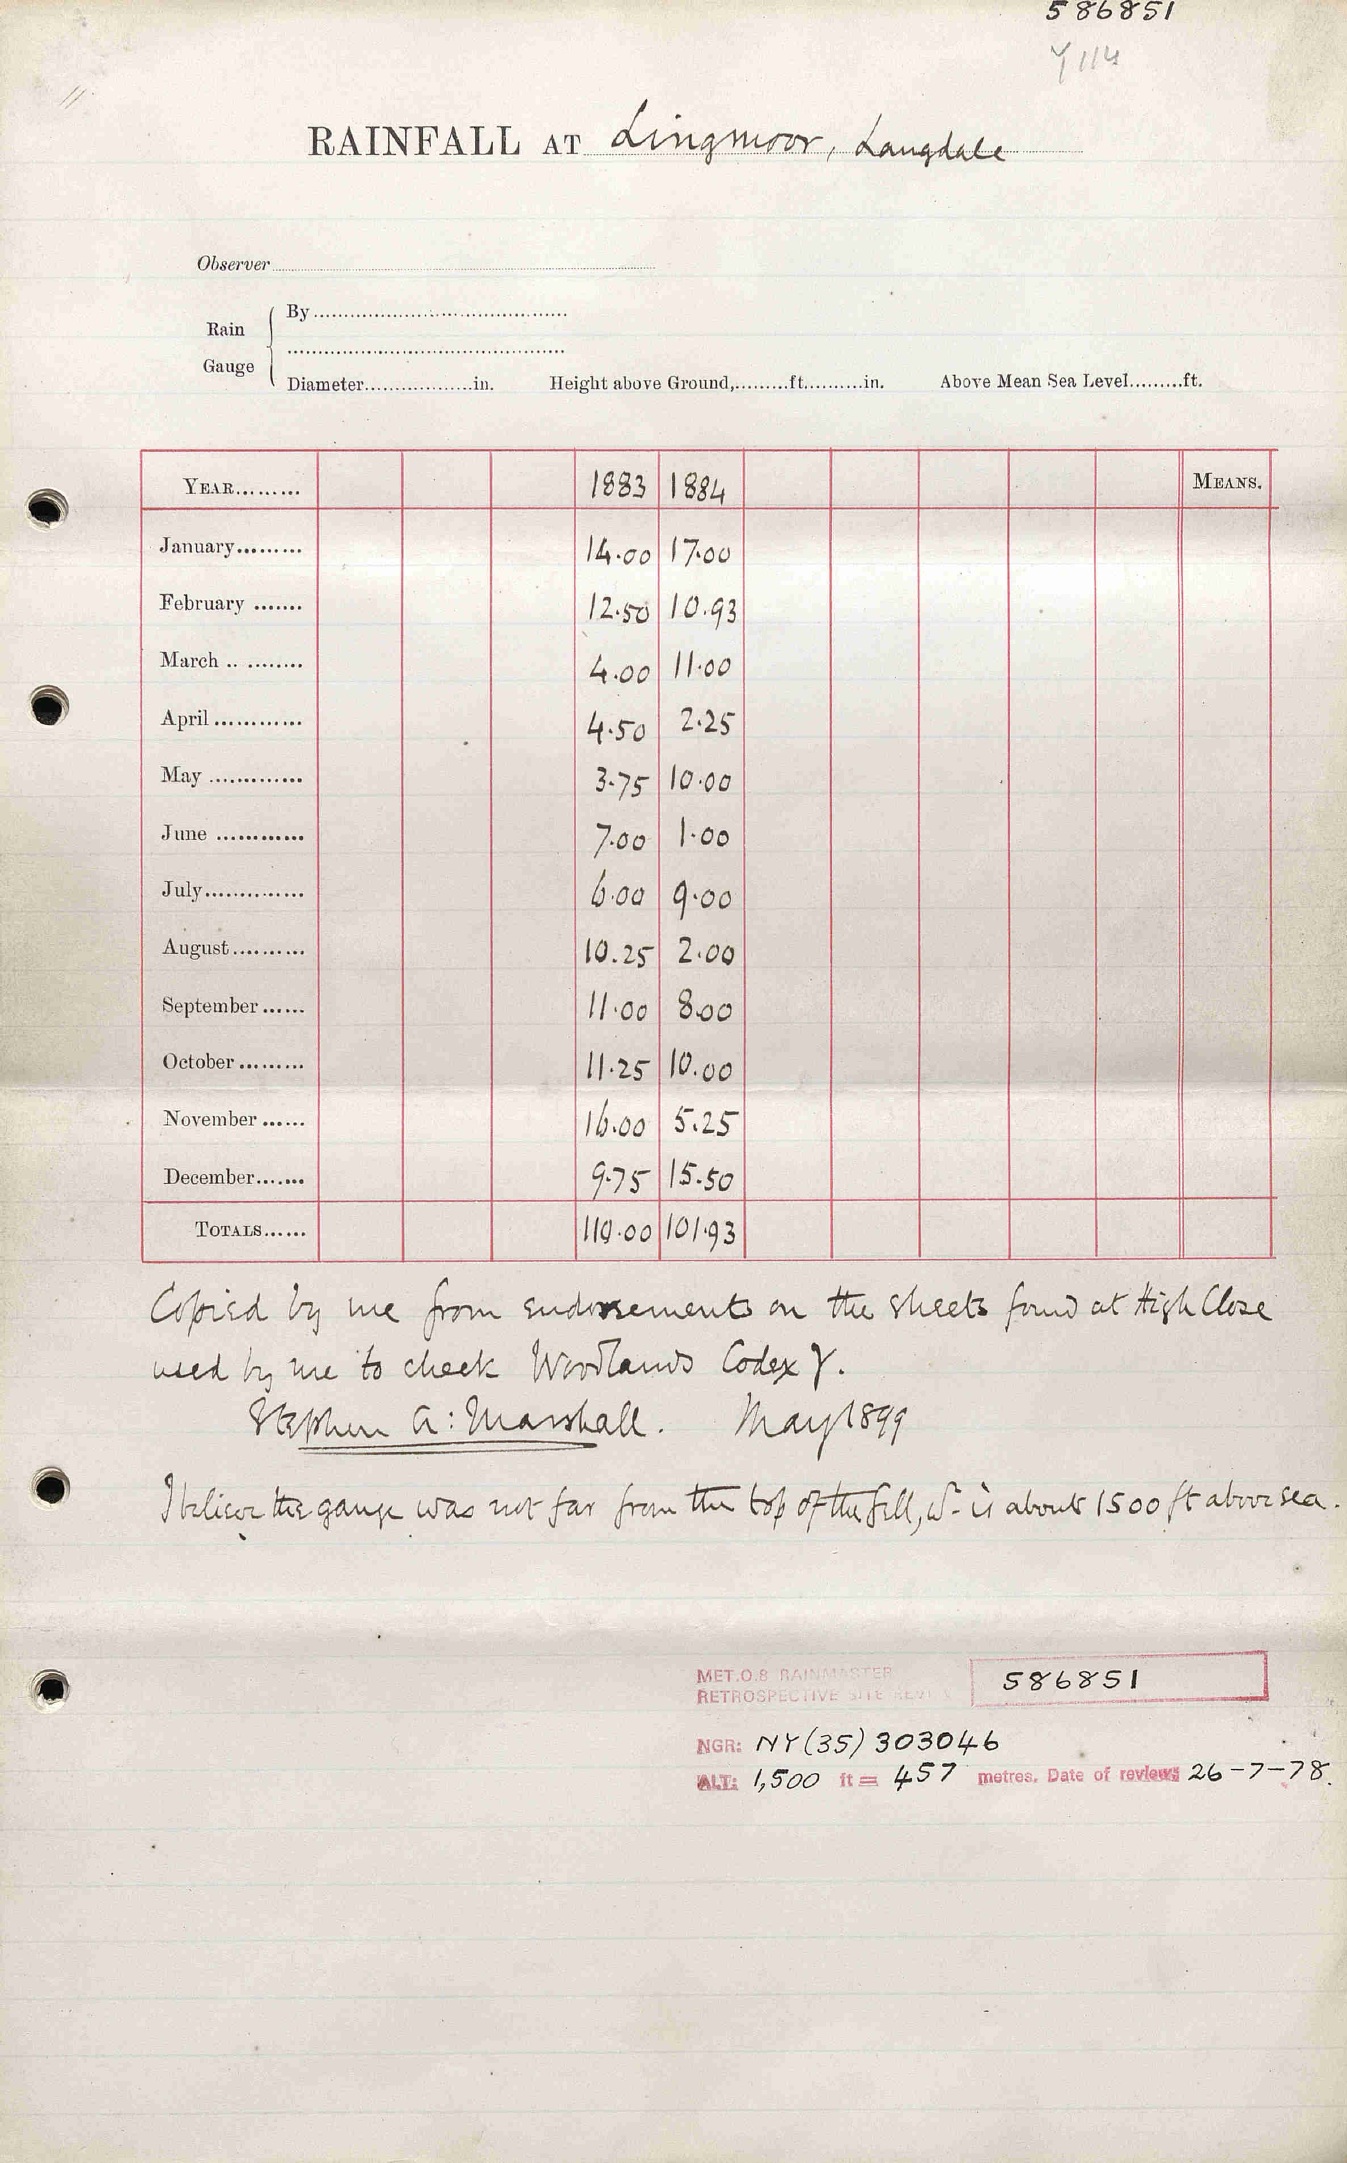 586851
Y114
RAINFALL AT Lingmoor, Langdale
Observer
Rain Gauge
By
Diameter in. Height above Ground, ft. in. Above Mean Sea Level ft.
YEAR 1883 1884 MEANS.
January 14.00 17.00
February 12.50 10.93
March 4.00 11.00
April 4.50 2.25
May 3.75 10.00
June 7.00 1.00
July 6.00 9.00
August 10.25 2.00
September 11.00 8.00
October 11.25 10.00
November 16.00 5.25
December 9.75 15.50
TOTALS 110.00 101.93
Copied by me from endorsements on the sheets found at High Close
used by me to check Woodlands Codex γ.
Stephen A: Marshall. May 1899
I believe the gauge was not far from the top of the fell, wh. is about 1500 ft above sea.
MET.O.8 RAINMASTER
RETROSPECTIVE SITE REVIEW 586851
NGR: NY (35) 303046
ALT: 1,500 ft = 457 metres. Date of review: 26-7-78.